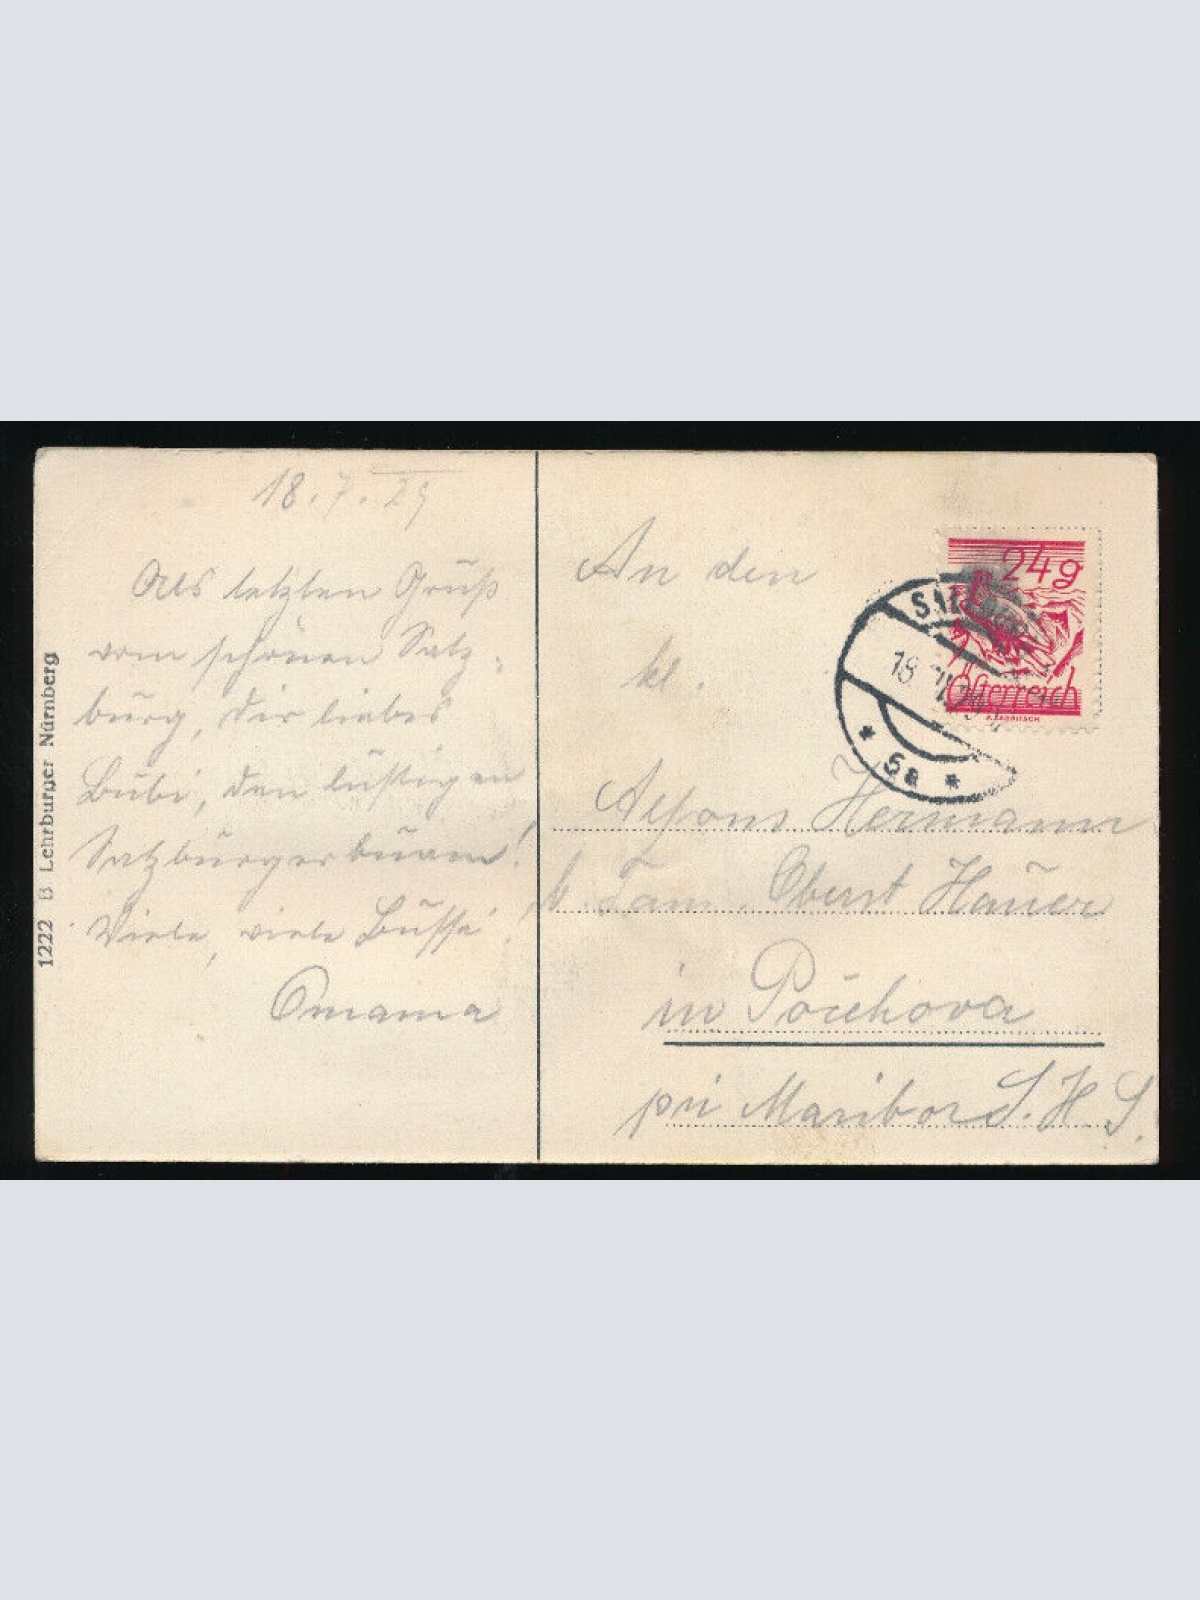 18. 7. 29
Als letzten Gruß
vom schönen Salz-
burg, dir liebes
Bubi, den lustigen
Salzburgerbuam!
Viele, viele Bussi!
Omama
1222 B Lehrburger Nürnberg
An den
kl.
Alfons Hermann
b. Fam. Oberst Hauer
in Počehova
pri Maribor S. H. S.
24g
Österreich
18
* 5a *